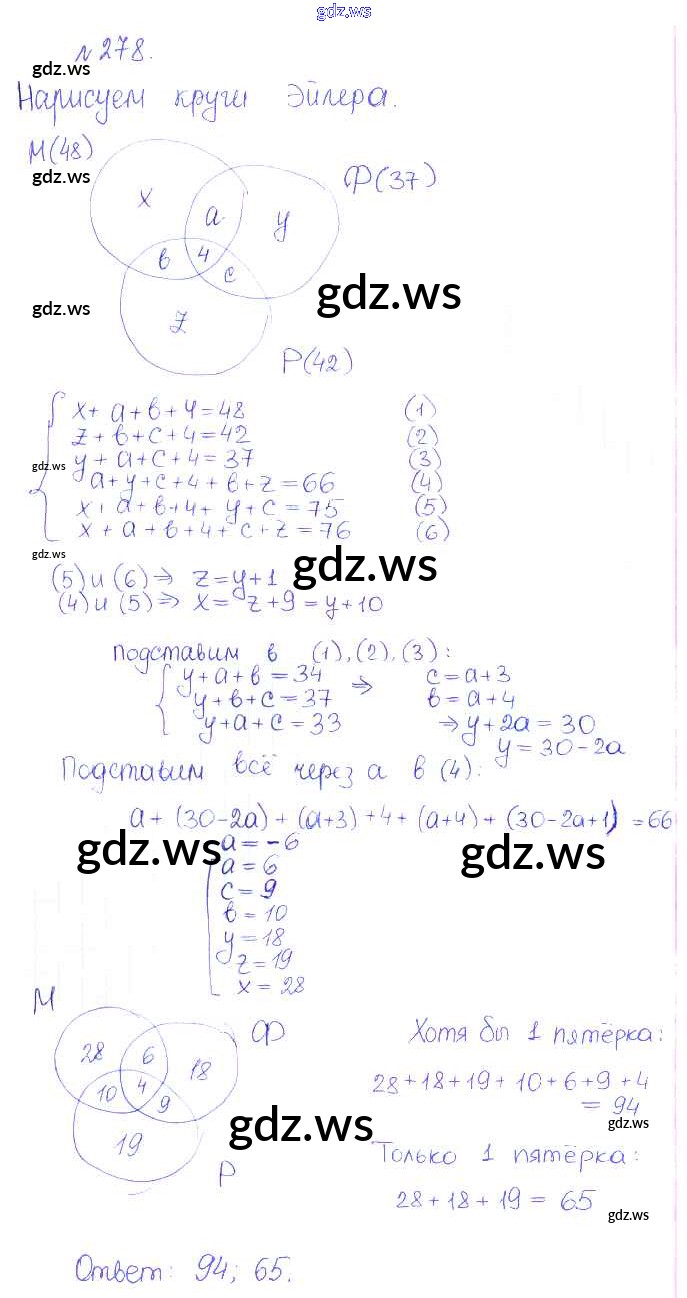 gdz.ws
№278.
gdz.ws
Нарисуем круги Эйлера.
М(48)
gdz.ws
Ф(37)
x a y
в 4 c
gdz.ws
gdz.ws
z
Р(42)
x + a + в + 4 = 48 (1)
z + в + c + 4 = 42 (2)
gdz.ws
y + a + c + 4 = 37 (3)
a + y + c + 4 + в + z = 66 (4)
x + a + в + 4 + y + c = 75 (5)
x + a + в + 4 + c + z = 76 (6)
gdz.ws
gdz.ws
(5) и (6) ⇒ z = y + 1
(4) и (5) ⇒ x = z + 9 = y + 10
подставим в (1), (2), (3):
y + a + в = 34 ⇒ c = a + 3
y + в + c = 37 в = a + 4
y + a + c = 33 ⇒ y + 2a = 30
y = 30 - 2a
Подставим всё через a в (4):
a + (30 - 2a) + (a + 3) + 4 + (a + 4) + (30 - 2a + 1) = 66
gdz.ws
gdz.ws
a = - 6
a = 6
c = 9
в = 10
y = 18
z = 19
x = 28
М
Ф
28 6 18
10 4 9
19
Р
gdz.ws
Хотя бы 1 пятёрка:
28 + 18 + 19 + 10 + 6 + 9 + 4
= 94
gdz.ws
Только 1 пятёрка:
28 + 18 + 19 = 65
gdz.ws
Ответ: 94; 65.